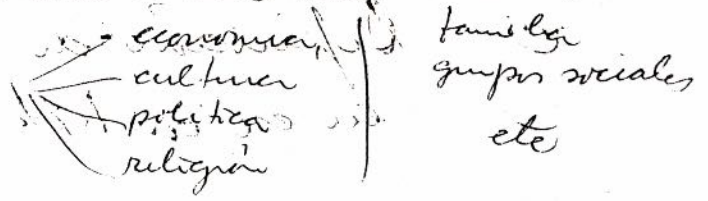 economia
cultura
política
religión
familia
grupos sociales
etc